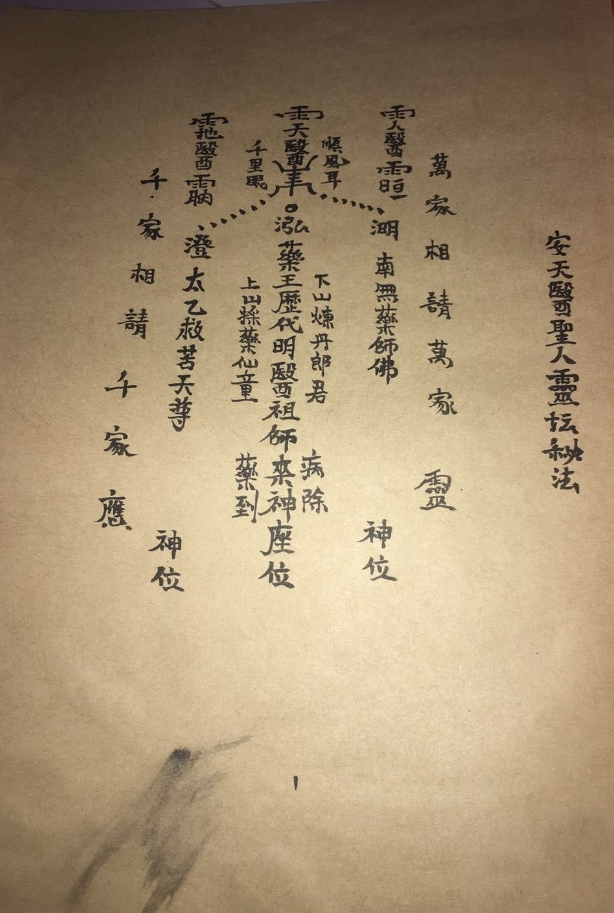 安天醫聖人靈坛秘法
萬家相請萬家靈
雨人醫
南無藥師佛
神位
順風耳
下山煉丹郎君
病除
雨天醫
泓
藥王歷代明醫祖師來神座位
千里眼
上山採藥仙童
藥到
澄
太乙救苦天尊
神位
千家相請千家應
1